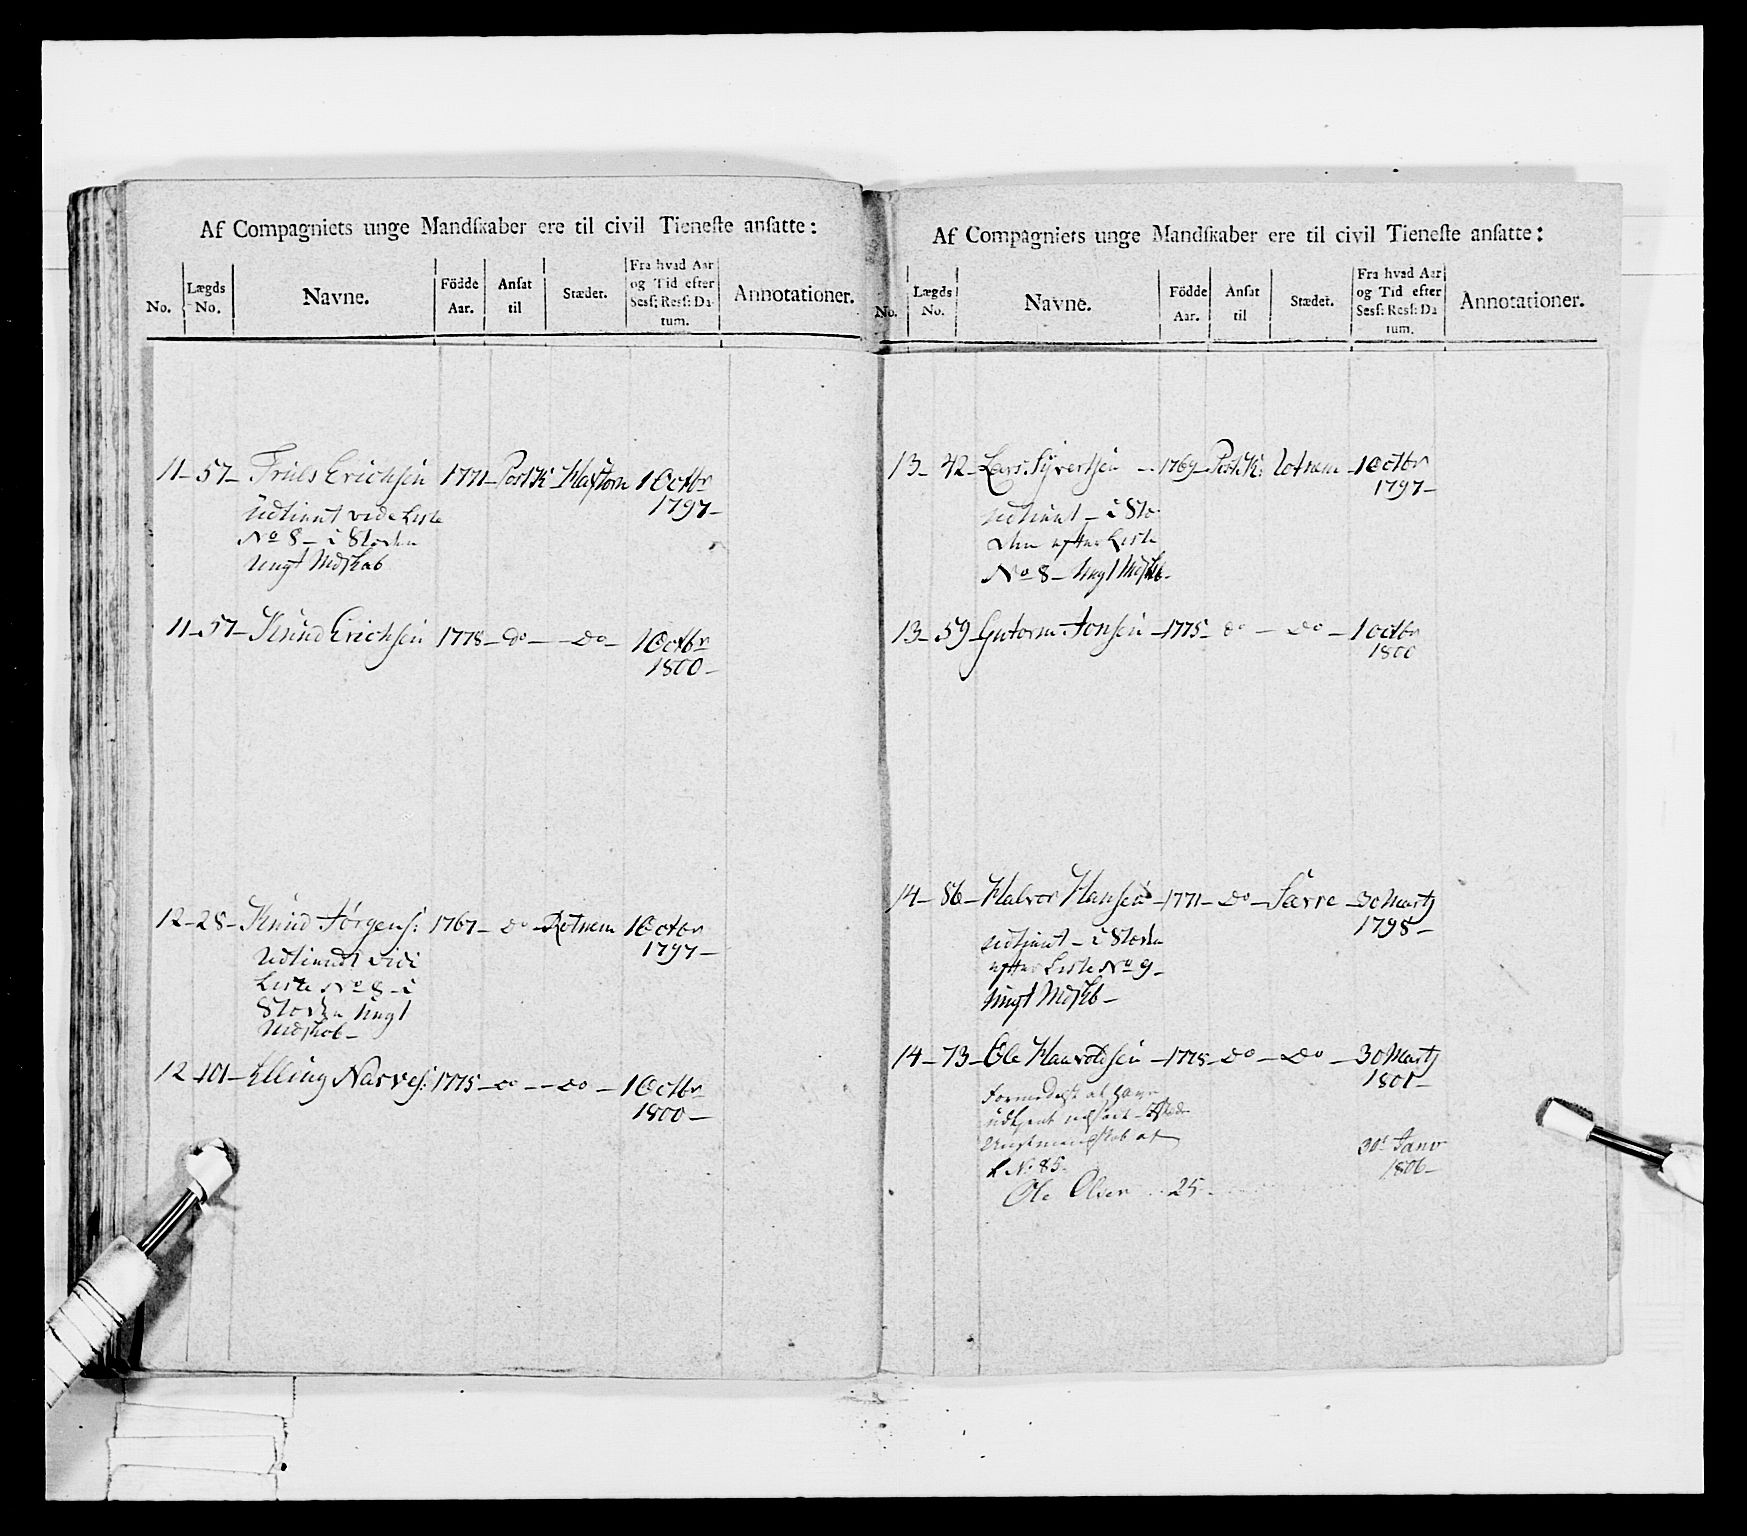 Af Compagniets unge Mandſkaber ere til civil Tieneſte anſatte:
No. Lægds No. Navne. Födde Aar. Anſat til Stæder. Fra hvad Aar og Tid efter Sesſ: Resſ: Datum. Annotationer.
11 - 57 - Erichsen 1771 - Postk - 1 Octbr
1797 -
Udtient vide Liste
No 8 - i Stæden
Ungt Mdskab
11 - 57 - Knud Erichsen 1778 - do - - do - 1 Octbr
1800 -
12 - 28 - Knud Jörgens: 1767 - do - Rotnem 1 Octbr
1797 -
Udtient vide
Liste No 8 - i
Stæden Ungt
Mdskab -
12 - 101 - Elling Narves: 1775 - do - - do - 1 Octbr
1800 -
Af Compagniets unge Mandſkaber ere til civil Tieneſte anſatte:
No. Lægds No. Navne. Födde Aar. Anſat til Stæder. Fra hvad Aar og Tid efter Sesſ: Resſ: Datum. Annotationer.
13 - 42 - Lars Syvertsen - 1769 - Postk: Rotnem - 1 Octbr
1797 -
Udtient - i Stæ-
den efter Liste
No 8 - Ungt Mdskb -
13 - 59 - Gutorm Jonsen - 1775 - do - do - 1 Octbr
1800
14 - 86 - Halvor Hansen - 1771 - do - Særre - 30 Marts
1798 -
udtient - i Stæden
efter Liste No 9 -
Ungt Mdskb -
14 - 73 - Ole - 1778 - do - do - 30 Marts
1801 -
Formedelst at have
udtjent
Ungtmandskab at
L No 85.
30t Janv
1806 -
Ole Olsen .. 25 -